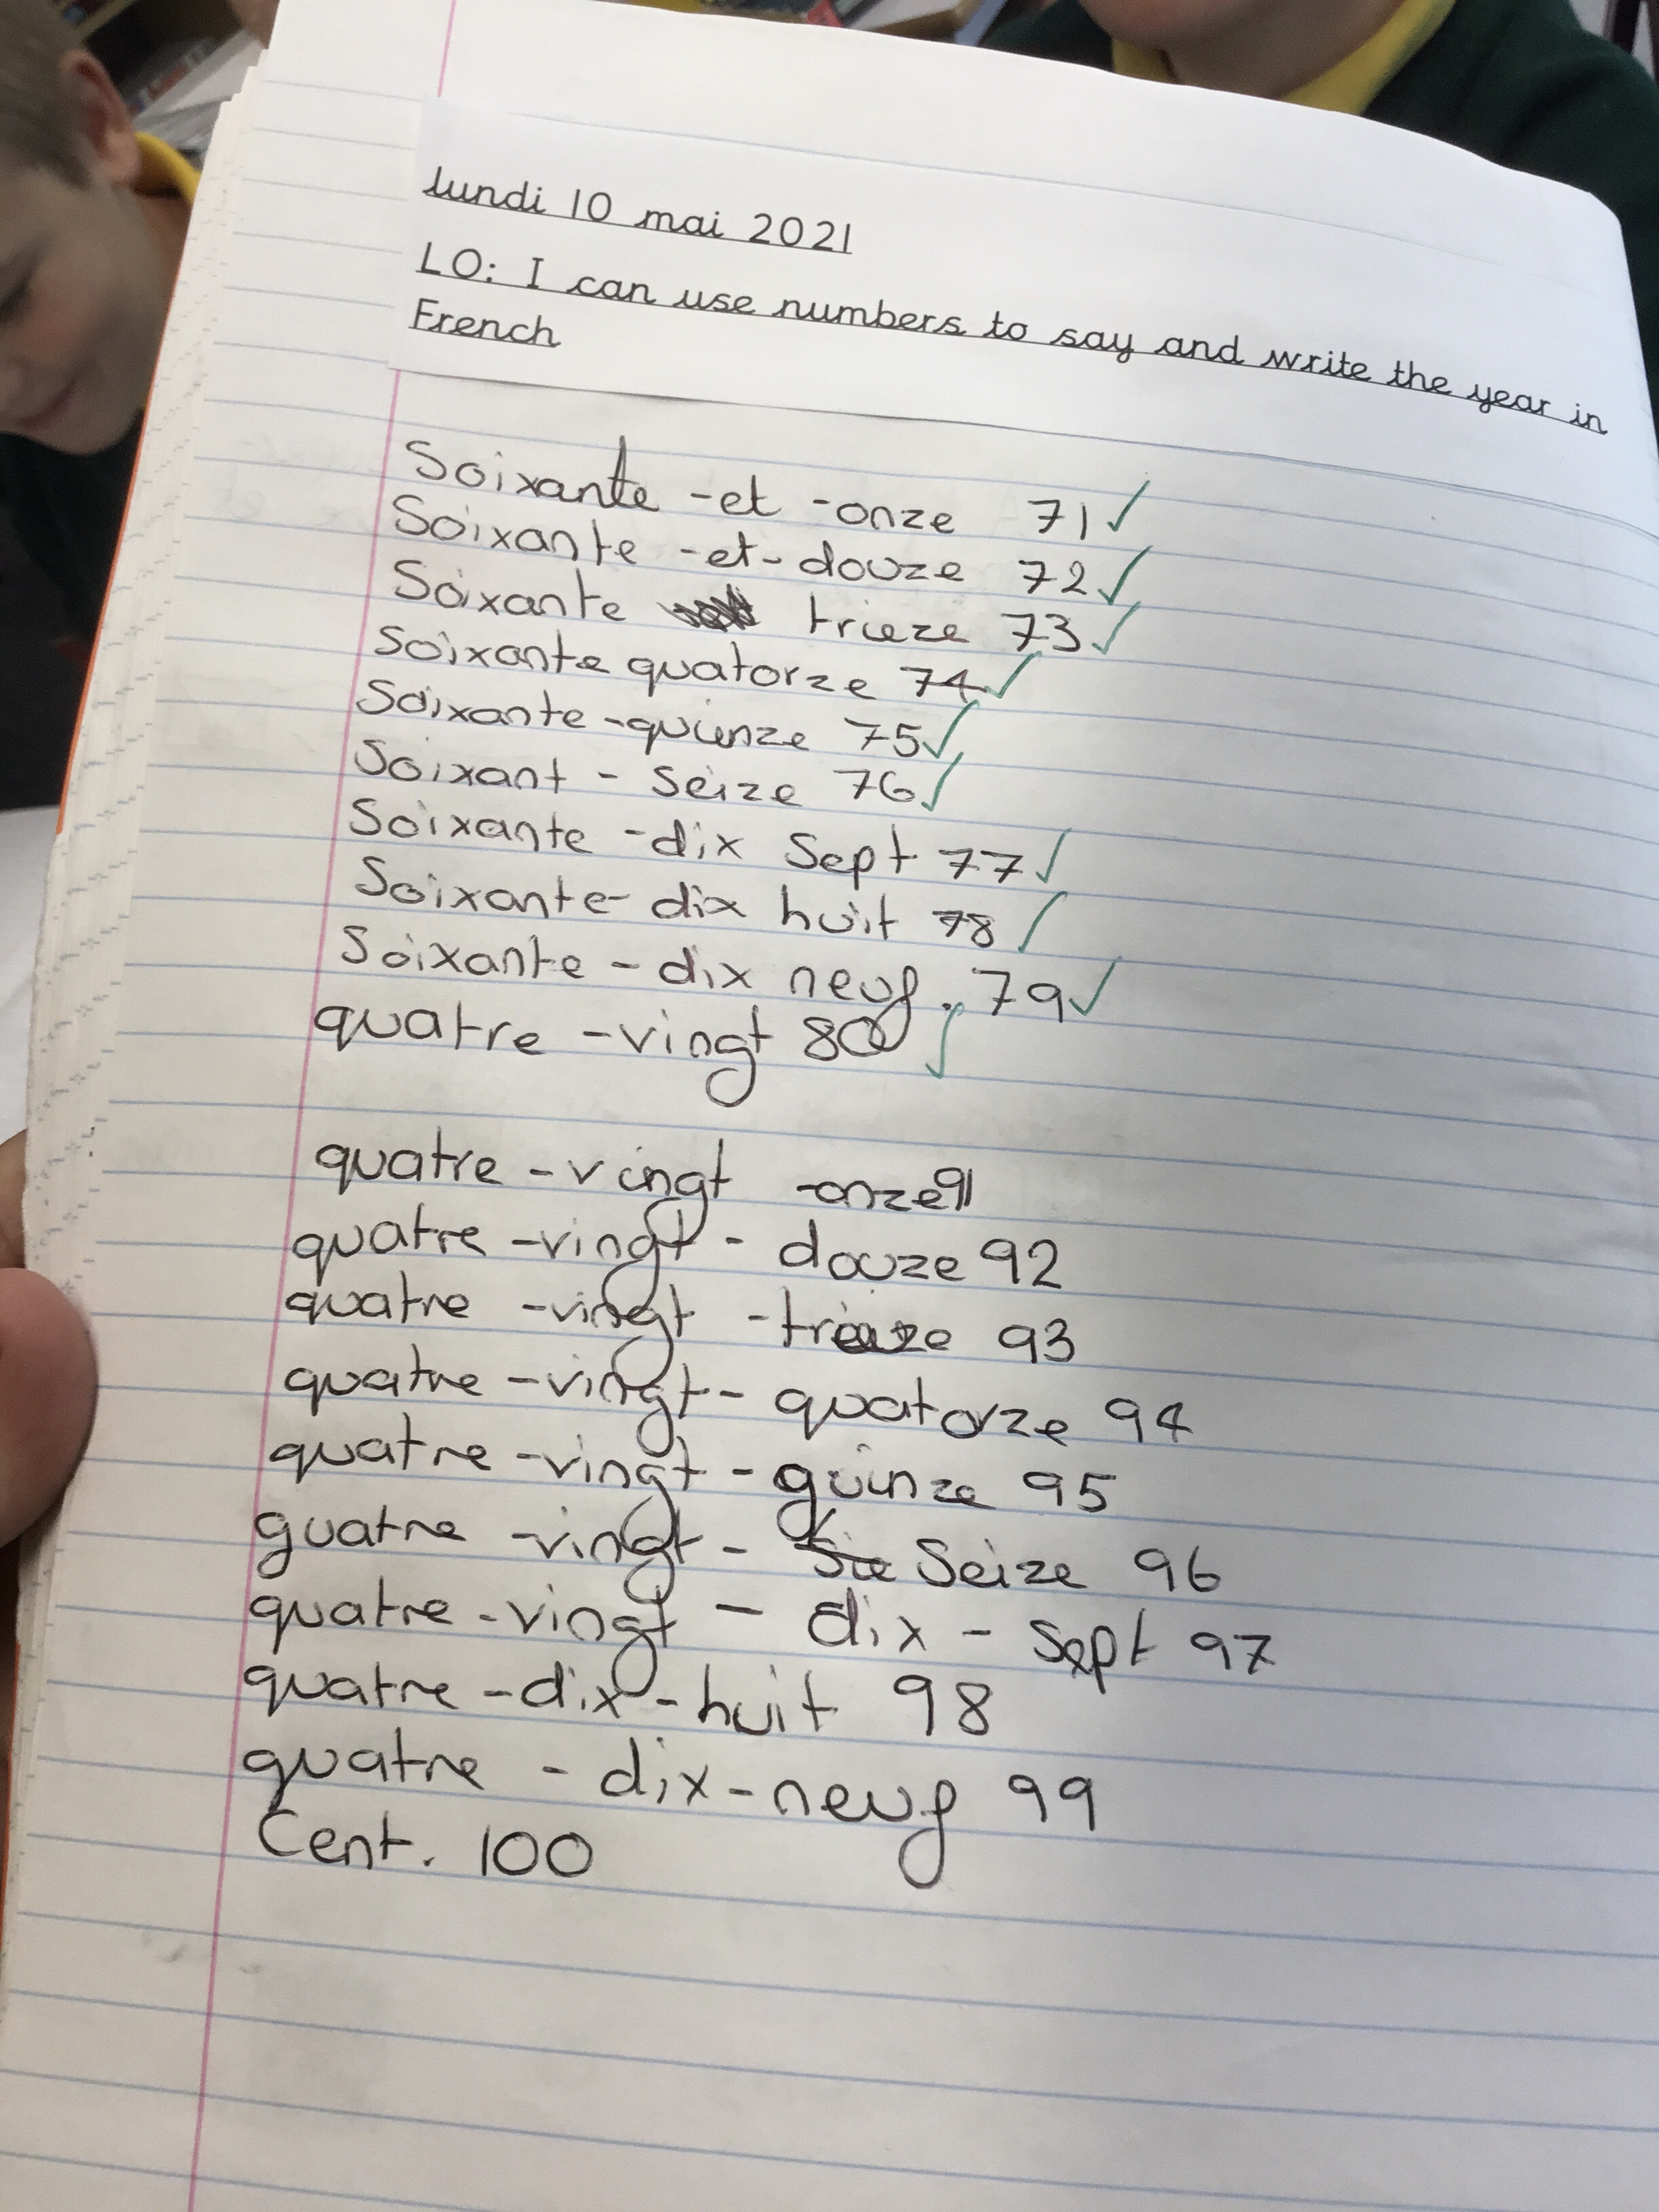 lundi 10 mai 2021
LO: I can use numbers to say and write the year in
French
Soixante -et -onze 71
Soixante -et- douze 72
Soixante trieze 73
Soixante quatorze 74
Soixante -quinze 75
Soixant - Seize 76
Soixante -dix Sept 77
Soixante- dix huit 78
Soixante - dix neuf. 79
quatre -vingt 80
quatre -vingt -onze 91
quatre -vingt - douze 92
quatre -vingt - 93
quatre -vingt- quatorze 94
quatre -vingt - quinze 95
quatre -vingt - Seize 96
quatre -vingt - dix - Sept 97
quatre -dix -huit 98
quatre - dix -neuf 99
Cent. 100